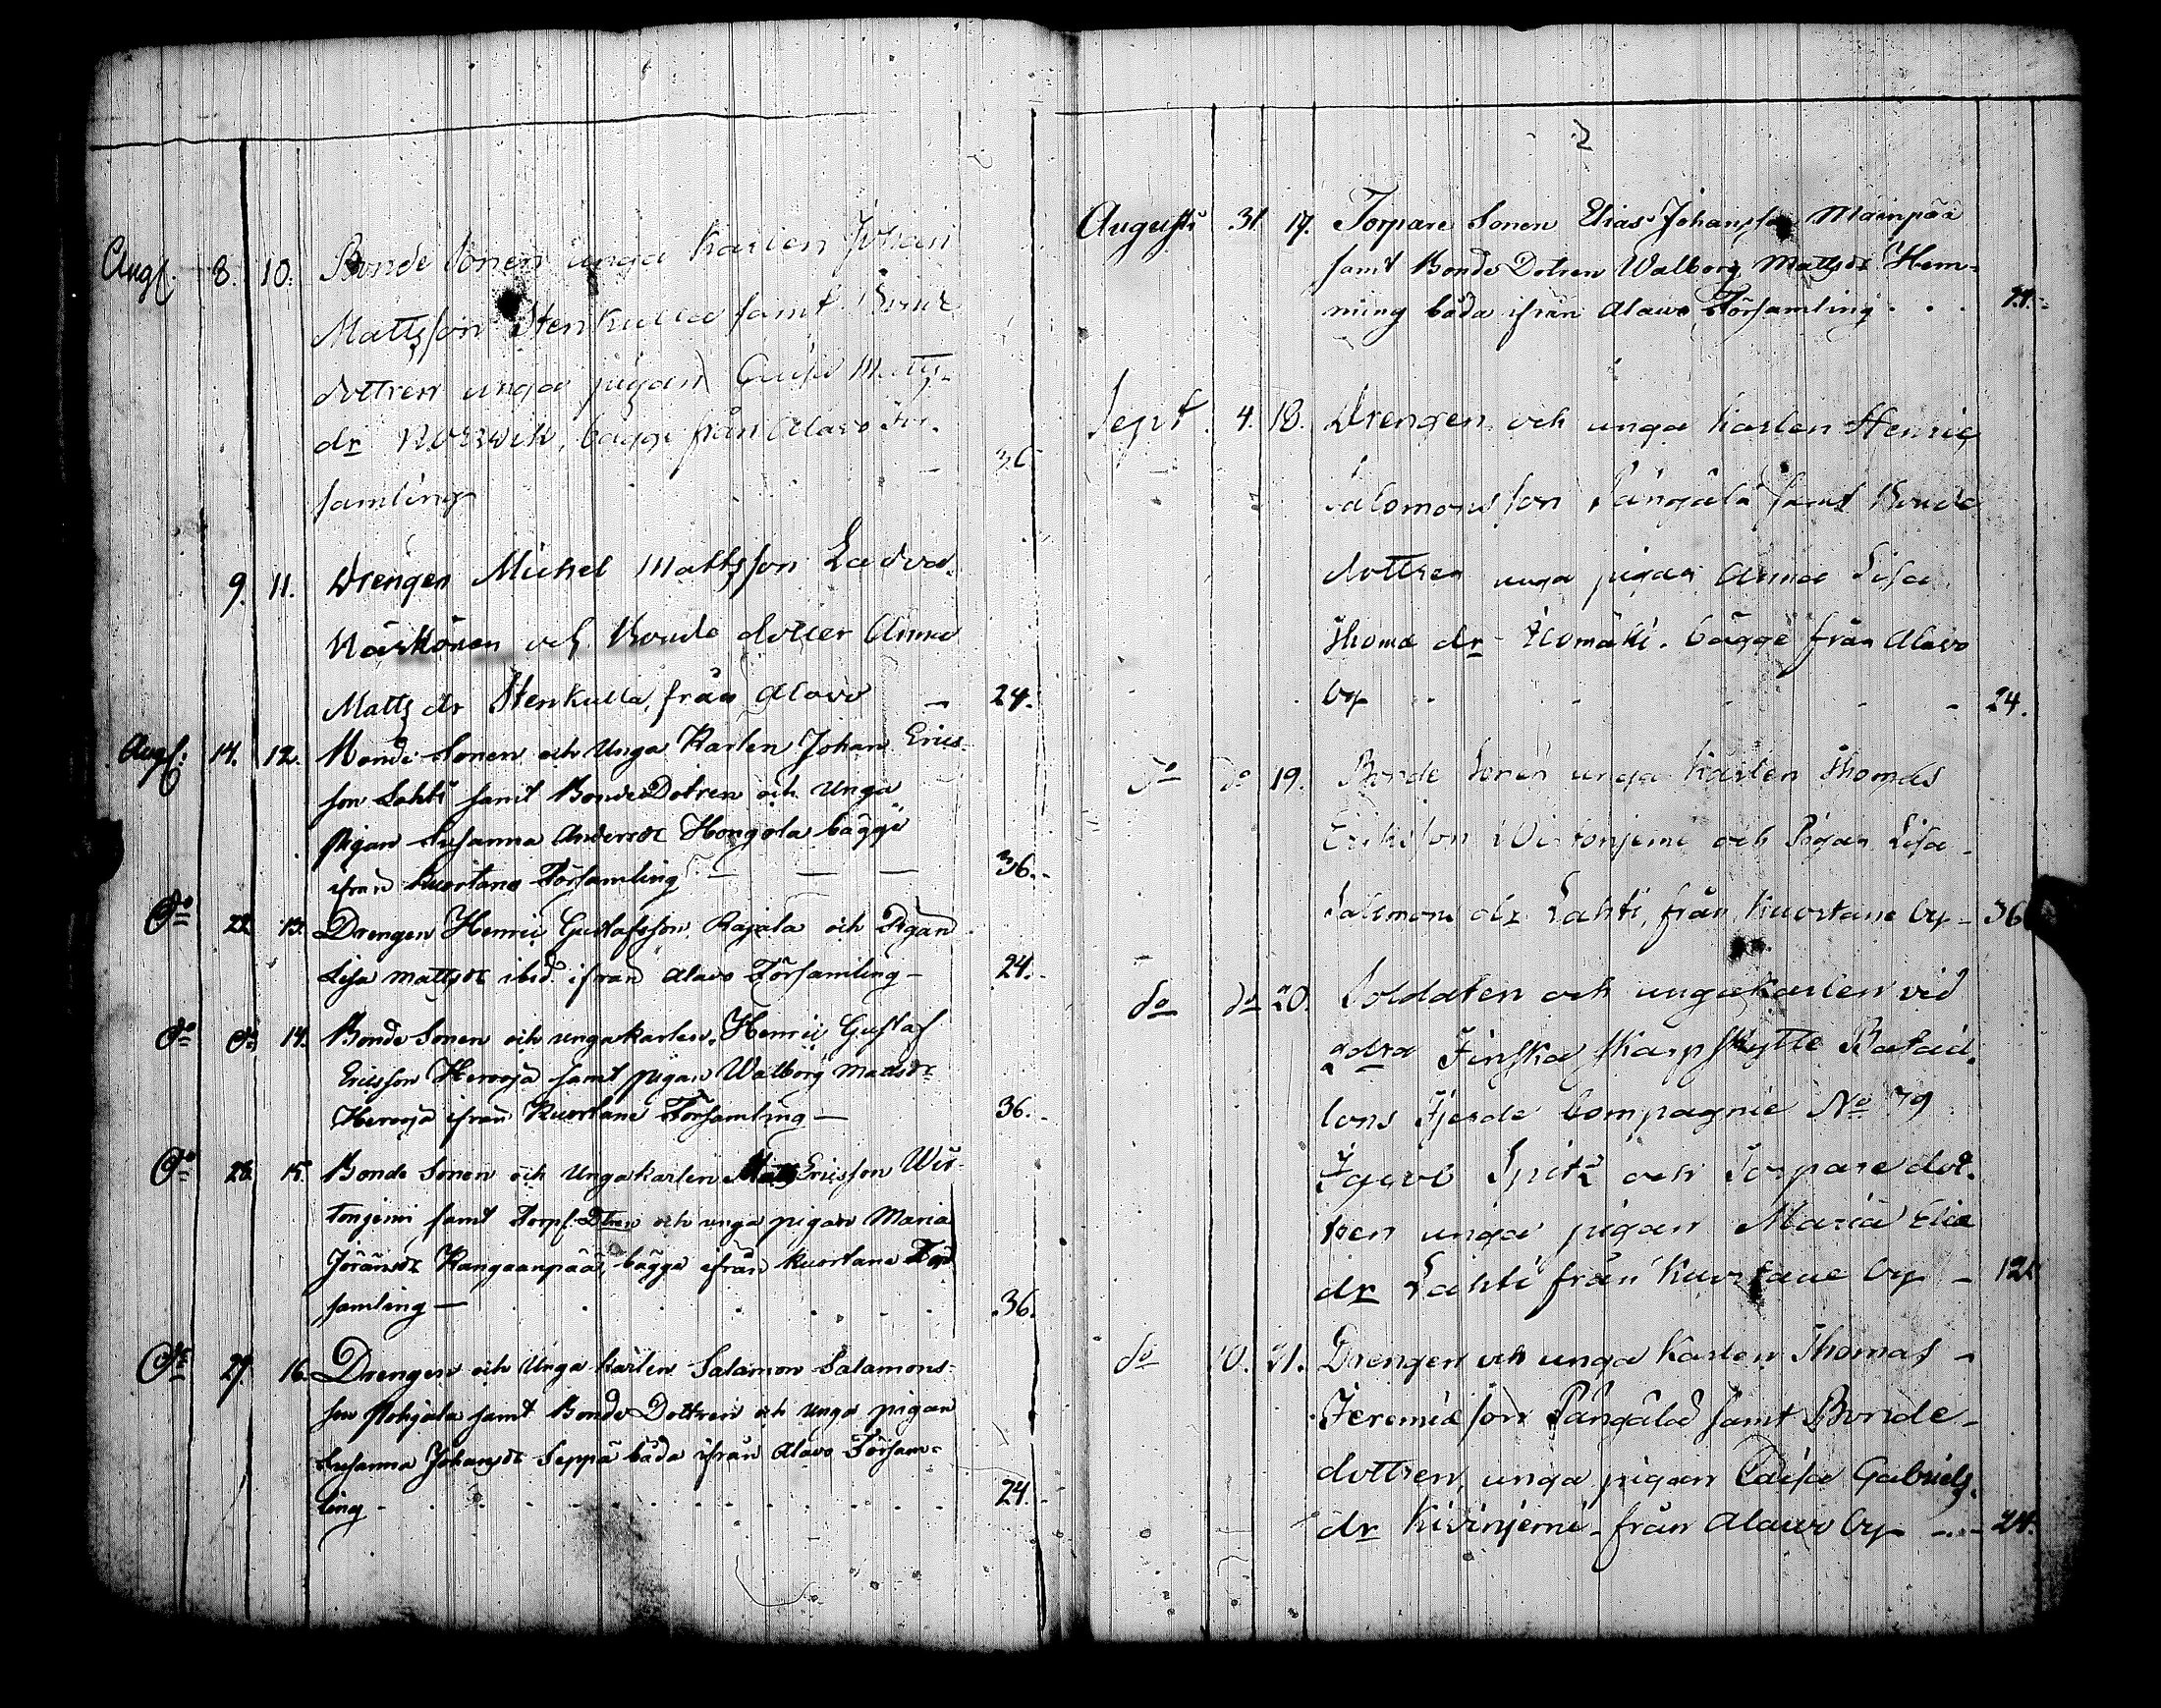 Augs. 8. 10. Bonde Sonen unga Karlen Johan
Mattsson Stenkulla samt Bonde
dottren unga pigan Caisa Matts
dr Norrwik, bägge från Alavo För-
samling 36.
9. 11. Drengen Michel Mattsson Ladva
Näskönen och Bonde dotter Anna
Matts dr Stenkulla, från Alavo — 24.
Augs: 14. 12. Bonde Sonen och Unga Karlen Johan Erics-
son Lahti samt Bonde Dotren och Unga
Pigan Susanna Andersdr Hongola bägge
ifrån Kuortane Församling — — — 36.
do 22 13. Drengen Henric Gustafsson Rajala och Pigan
Lisa Mattsdr ibid. ifrån Alavo Församling — 24.
do do 14. Bonde Sonen och unga karlen, Henric Gustaf
Ericsson Heroja samt pigan Walborg Madsdr
Heroja ifrån Kuortane Församling — 36.
do 28. 15. Bonde Sonen och Unga karlen Matts Ericsson Wir-
tonjemi samt Torp. Dtren och unga pigan Maria
Jöransdr Kangaanpää, bägge ifrån Kuortane För
samling — 36.
do 29. 16. Drengen och Unga Karlen Salamon Salamons-
son Pohjala samt Bonde Dottren och Unga pigan
Susanna Johansdr Seppä båda ifrån Alavo Försam-
ling - 24.
2
Augusti 31 17. Torpare Sonen Elias Johansson Mäinpää
samt Bonde Dotren Walborg Mattsdr Hem-
ming båda ifrån Alavo Församling . . .
Sept. 4. 18. Drengen och unga karlen Henric
Salomonsson Pångälä samt Bonde
dottren unga pigan Anna Lisa
Thomæ dr - Ilomäki. bägge från Alavo
by - 24.
do do 19. Bonde Sonen unga karlen Thomas
Eriksson Wirtonjemi och Pigan Lisa
Salomons dr Lahti, från Kuortane by - 36
do do 20. Soldaten och unga karlen vid
andra Finska Skarpskytte Batail-
lons Fjerde Compagnie No 79
Jacob Spitz och Torpare dot-
tren unga pigan Maria Eliæ
dr Lahti från Kuortane by - 12.
do 10. 21. Drengen och unga Karlen Thomas -
Jeremiæ son Pångälä samt Bonde-
dottren, unga pigan Caisa Gabriels-
dr Kivinjemi - från Alavo by - 24.